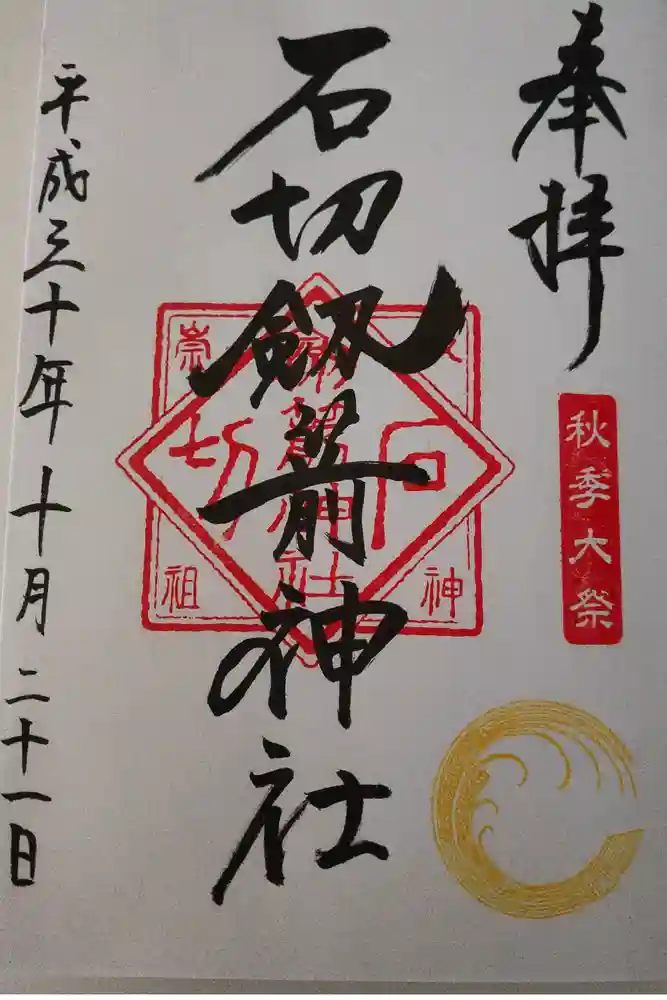 奉拝
秋季大祭
石切劔箭神社
崇
敬
祖
神
平成三十年十月二十一日